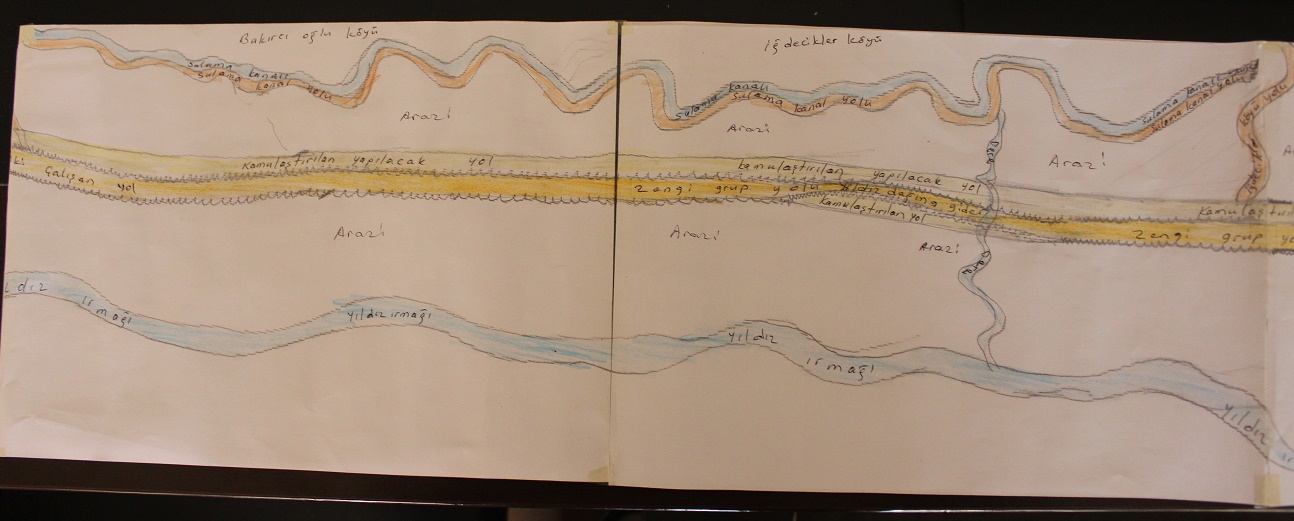 Bakırcı oğlu köyü
iğdecikler köyü
Sulama kanalı
Sulama kanal yolu
Sulama kanalı
Sulama kanal yolu
Sulama kanalı
Sulama kanal yolu
köyü yolu
Arazi
Arazi
Arazi
Dere
Kamulaştırılan yapılacak yol
kamulaştırılan yapılacak yol
Kamulaştırıl
ki Çalışan yol
Zengi grup yolu Yıldız dağına gider
Kamulaştırılan yol
Zengi grup yo
Arazi
Arazi
Arazi
Dere
ldız ırmağı
yıldız ırmağı
yıldız ırmağı
yıldız ır